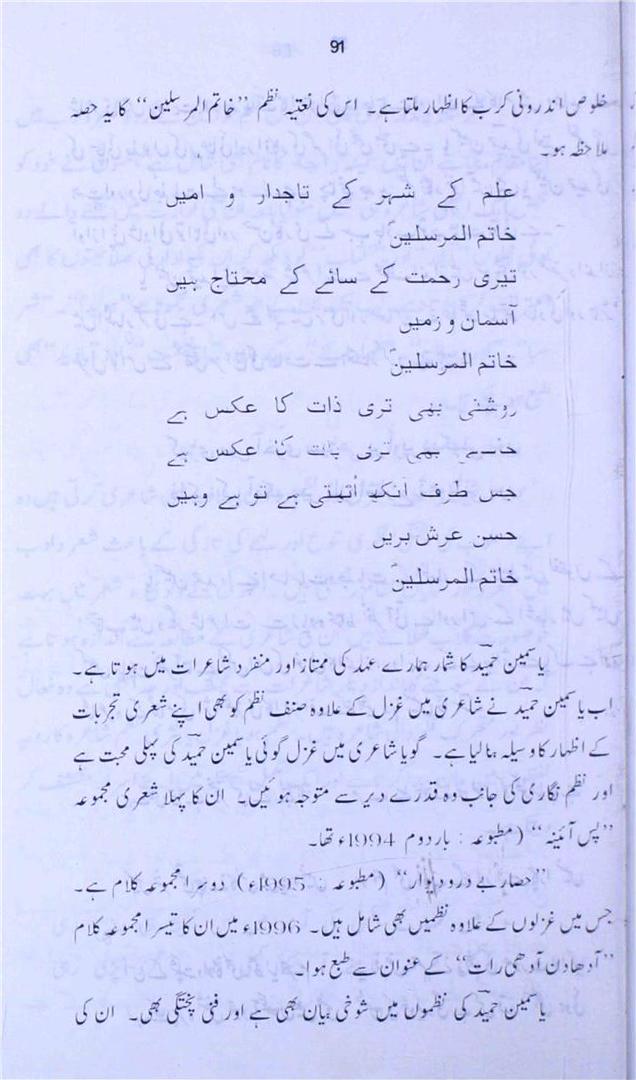 91
خلوص اندرونی کرب کا اظہار ملتا ہے۔ اس کی نعتیہ نظم ”خاتم المرسلین“ کا یہ حصہ
ملاحظہ ہو۔
علم کے شہر کے تاجدار و امیں
خاتم المرسلینؐ
تیری رحمت کے سائے کے محتاج ہیں
آسمان و زمیں
خاتم المرسلینؐ
روشنی بھی تری ذات کا عکس ہے
خامشی بھی تری بات کا عکس ہے
جس طرف آنکھ اٹھتی ہے تو ہے وہیں
حسن عرش بریں
خاتم المرسلینؐ
یاسمین حمیدؔ کا شمار ہمارے عہد کی ممتاز اور منفرد شاعرات میں ہوتا ہے۔
اب یاسمین حمیدؔ نے شاعری میں غزل کے علاوہ صنف نظم کو بھی اپنے شعری تجربات
کے اظہار کا وسیلہ بنا لیا ہے۔ گویا شاعری میں غزل گوئی یاسمین حمیدؔ کی پہلی محبت ہے
اور نظم نگاری کی جانب وہ قدرے دیر سے متوجہ ہوئیں۔ ان کا پہلا شعری مجموعہ
”پس آئینہ“ (مطبوعہ : بار دوم 1994ء تھا۔
”حصار بے در و دیوار“ (مطبوعہ : 1995ء) دوسرا مجموعہ کلام ہے۔
جس میں غزلوں کے علاوہ نظمیں بھی شامل ہیں۔ 1996ء میں ان کا تیسرا مجموعہ کلام
”آدھا دن آدھی رات“ کے عنوان سے طبع ہوا۔
یاسمین حمیدؔ کی نظموں میں شوخی بیان بھی ہے اور فنی پختگی بھی۔ ان کی